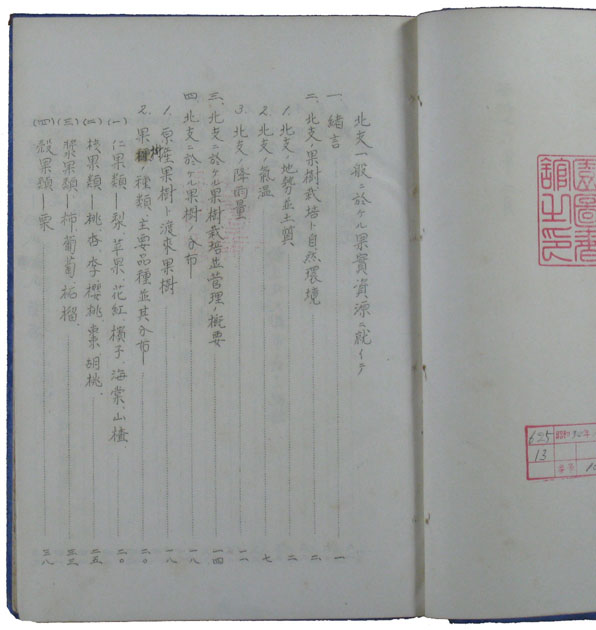 北支一般ニ於ケル果實資源ニ就イテ
一、緒言 一
二、北支ノ果樹栽培ト自然環境 二
1. 北支ノ地勢並土質 二
2. 北支ノ氣温 七
3. 北支ノ降雨量 一一
三、北支ニ於ケル果樹栽培並管理ノ概要 一四
四 北支ニ於ケル果樹ノ分布 一八
1. 原產果樹ト渡來果樹 一八
2. 果樹ノ種類、主要品種並其分布 二〇
(一) 仁果類 梨、苹果、花紅、檳子、海棠、山樝 二〇
(二) 核果類 桃、杏、李、櫻桃、棗、胡桃、 二五
(三) 漿果類、 柿、葡萄、柘榴、 三三
(四) 殼果類 栗 三八
圖書
館之印
625 昭和30年
13